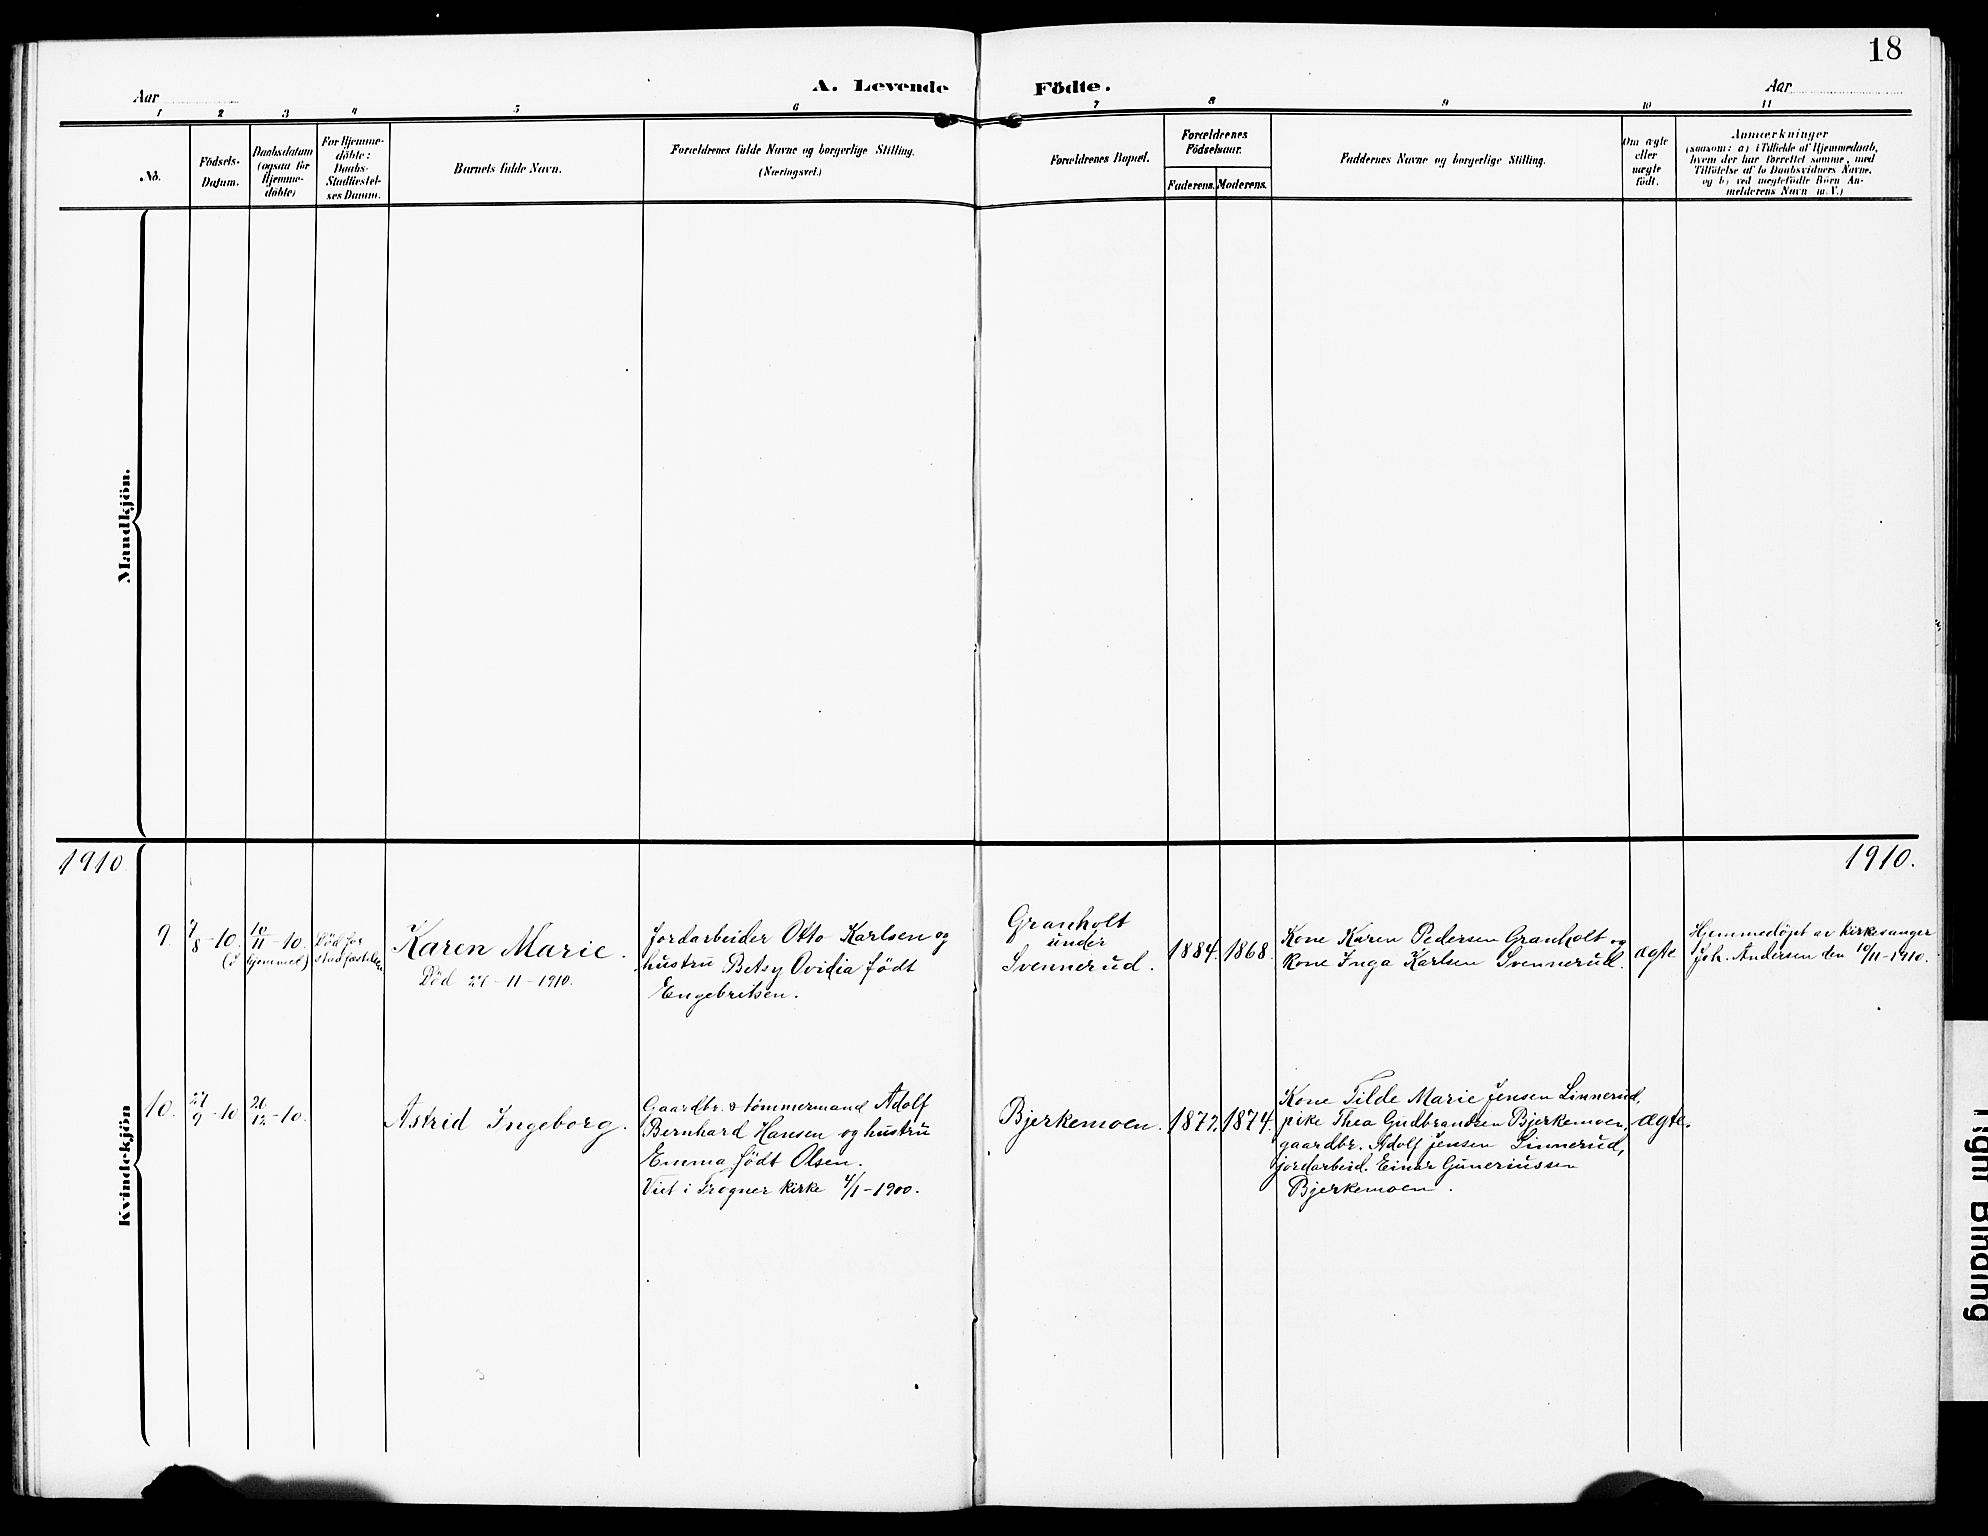 18
Aar
A. Levende Födte.
Aar
1 2 3 4 5 6 7 8 9 10 11
No.
Födsels-
Datum.
Daabsdatum
(ogsaa for
Hjemme-
döbte)
For Hjemme-
döbte:
Daabs-
Stadfæstel-
ses Datum.
Barnets fulde Navn.
Forældrenes fulde Navne og borgerlige Stilling.
(Næringsvei.)
Forældrenes Bopæl.
Forældrenes
Födselsaar.
Faderens. Moderens.
Faddernes Navne og borgerlige Stilling.
Om ægte
eller
uægte
födt.
Anmærkninger
(saasom: a) i Tilfælde af Hjemmedaab,
hvem der har forrettet samme, med
Tilföielse af to Daabsvidners Navne,
og b) ved uægtefödte Börn An-
melderens Navn m.V.)
Mandkjön.
1910
1910.
Kvindekjön
9.
8-10.
10/11-10.
(hjemmet)
Död for
stadfæstelsen
Karen Marie.
Död 27-11-1910.
Jordarbeider Otto Karlsen og
hustru Betsy Ovidia født
Engebritsen.
Granholt
under
Svennerud.
1884. 1868.
Kone Karen Pedersen Granholt og
kone Inga Karlsen Svennerud.
ægte
Hjemmedöpt av kirkesanger
Joh. Andersen den 10/11-1910.
10.
27/9-10
26/12-10.
Astrid Ingeborg.
Gaardbr. & tömmermand Adolf
Bernhard Hansen og hustru
Emma født Olsen.
Viet i kirke 4/1-1900.
Bjerkemoen.
1872. 1874.
Kone Tilde Marie Jensen Linnerud,
pike Thea Gudbrandsen Bjerkemoen,
gaardbr. Adolf Jensen Linnerud,
jordarbeid. Einar Guneriussen
Bjerkemoen.
ægte.
Tight Binding